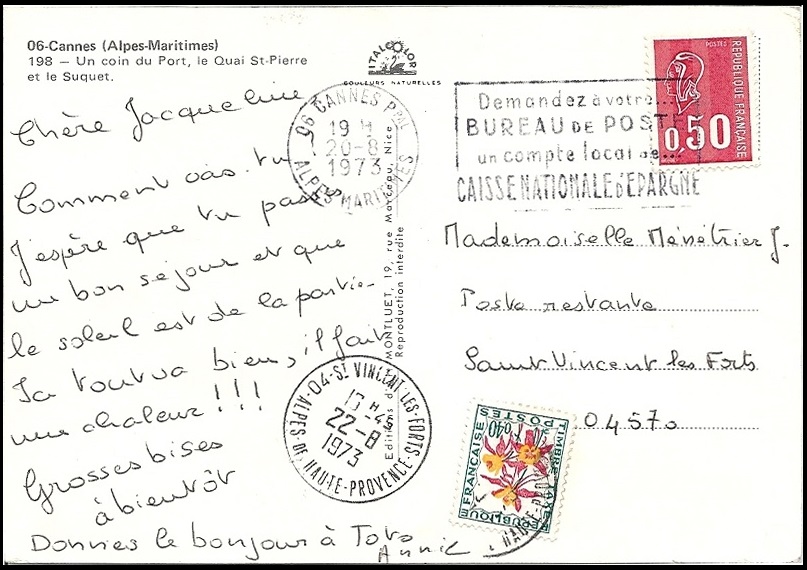 06-Cannes (Alpes-Maritimes)
198 – Un coin du Port, le Quai St-Pierre
et le Suquet.
ITALCOLOR
COULEURS NATURELLES
06 CANNES Ppal
19 H
20-8
1973
ALPES MARITIMES
Demandez à votre...
BUREAU DE POSTE
un compte local de...
CAISSE NATIONALE D'EPARGNE
POSTES
REPUBLIQUE FRANÇAISE
0,50
Chère Jacqueline
Comment vas. tu
J'espère que tu passes
un bon séjour et que
le soleil est de la partie.
Ici tout va bien, il fait
une chaleur !!!
Grosses bises
à bientôt
Donnes le bonjour à Toto
Annie.
MONTLUET, 19, rue Marceau, Nice
Reproduction interdite
Mademoiselle Ménétrier J.
Poste restante
Saint Vincent les Forts
04570
04-ST VINCENT-LES-FORTS
13 H -45
22-8
1973
ALPES-DE-HAUTE-PROVENCE
TIMBRE TAXE
POSTES
0,40
REPUBLIQUE FRANÇAISE